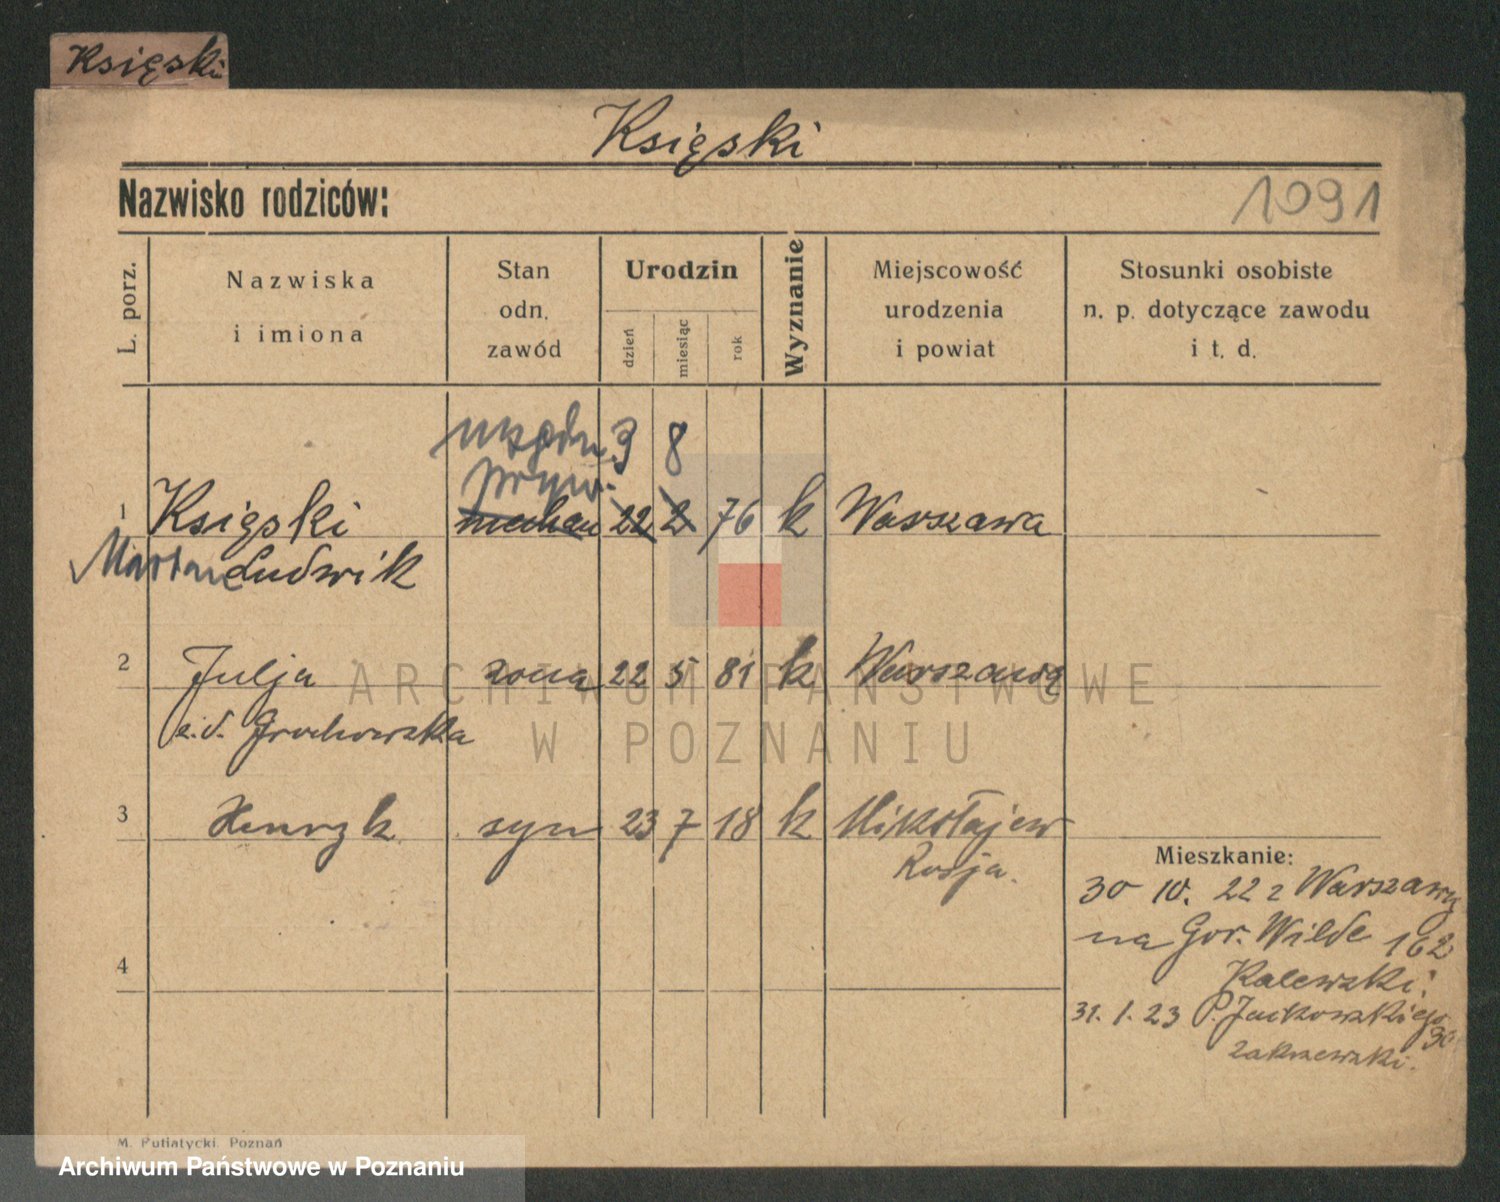 Księski
Księski
Nazwisko rodziców:
1091
L. porz.
Nazwiska
i imiona
Stan
odn.
zawód
Urodzin
dzień
miesiąc
rok
Wyznanie
Miejscowość
urodzenia
i powiat
Stosunki osobiste
n. p. dotyczące zawodu
i t. d.
urzędn. 3 8
pryw.
1 Księski mechan 22 2 76 k Warszawa
Ludwik
2 Julja żona 22 5 81 k Warszawa
z. d. Grochowska
3 Henryk syn 23 7 18 k Mikołajew
Rosja.
Mieszkanie:
30 10. 22 z Warszawy
na Gór. Wilde 162
31. 1. 23 P. Jackowskiego 30
Zakrzewski.
4
ARCHIWUM PAŃSTWOWE
W POZNANIU
M. Putiatycki, Poznań
Archiwum Państwowe w Poznaniu